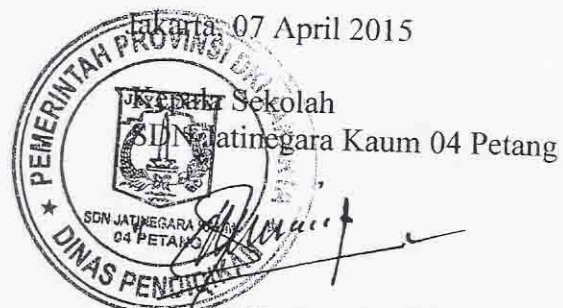 Jakarta, 07 April 2015
Kepala Sekolah
SDN Jatinegara Kaum 04 Petang
PEMERINTAH PROVINSI DKI
SDN JATINEGARA
04 PETANG
DINAS PENDIDIKAN